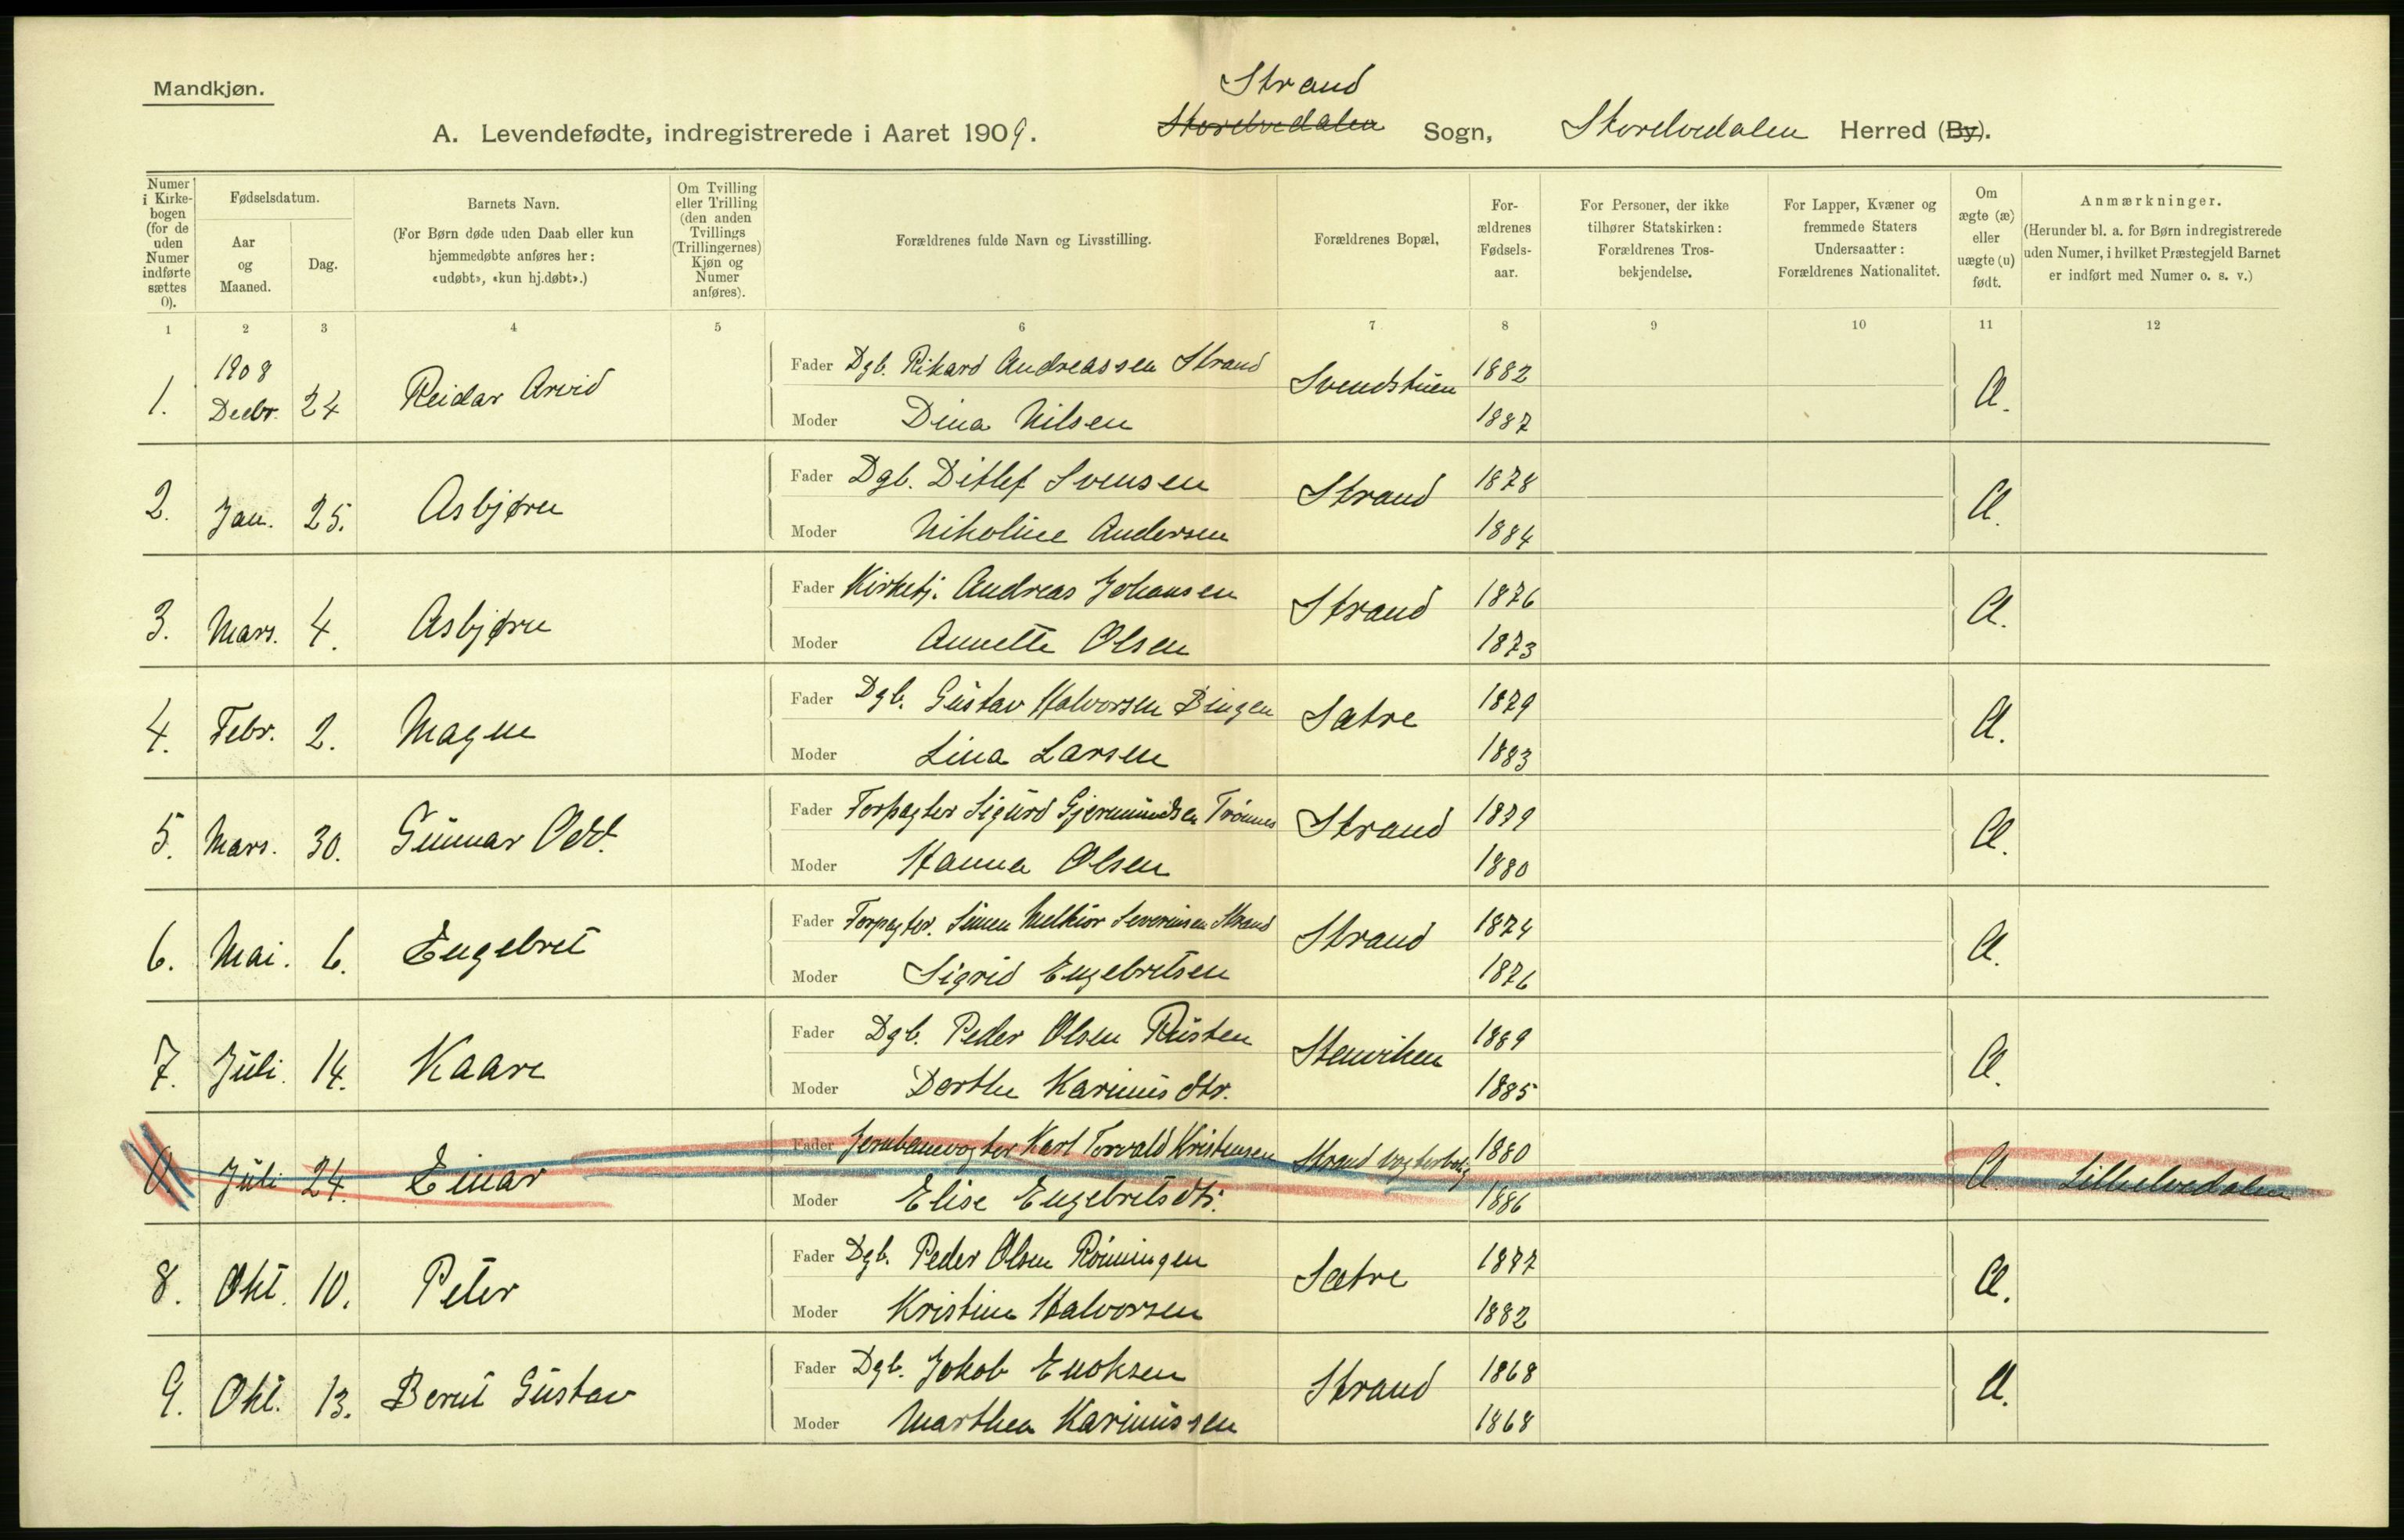 Mandkjøn.
Strand
A. Levendefødte, indregistrerede i Aaret 1909. Storelvedalen Sogn, Storelvedalen Herred (By).
Numer i Kirke-bogen (for de uden Numer indførte sættes 0).
Fødselsdatum.
Aar og Maaned.
Dag.
Barnets Navn.
(For Børn døde uden Daab eller kun
hjemmedøbte anføres her:
«udøbt», «kun hj.døbt».)
Om Tvilling
eller Trilling
(den anden
Tvillings
(Trillingernes)
Kjøn og
Numer
anføres).
Forældrenes fulde Navn og Livsstilling.
Forældrenes Bopæl,
For-
ældrenes
Fødsels-
aar.
For Personer, der ikke
tilhører Statskirken:
Forældrenes Tros-
bekjendelse.
For Lapper, Kvæner og
fremmede Staters
Undersaatter:
Forældrenes Nationalitet.
Om
ægte (æ)
eller
uægte (u)
født.
Anmærkninger.
(Herunder bl. a. for Børn indregistrerede
uden Numer, i hvilket Præstegjeld Barnet
er indført med Numer o. s. v.)
1 2 3 4 5 6 7 8 9 10 11 12
1. 1908 Decbr. 24 Reidar Arvid Fader Dgb. Rikard Andreassen Strand Svendstuen 1882 Æ.
Moder Dina Nilsen 1887
2. Jan. 25. Asbjørn Fader Dgb. Ditlef Svensen Strand 1878 Æ.
Moder Nikoline Andersen 1884
3. Mars. 4. Asbjørn Fader Kirketj. Andreas Johansen Strand 1876 Æ.
Moder Annette Olsen 1873
4. Febr. 2. Magne Fader Dgb. Gustav Halvorsen Bingen Sætre 1879 Æ.
Moder Lina Larsen 1883
5. Mars. 30. Gunnar Odd. Fader Forpagter Sigurd Gjermundsen Trønnes Strand 1879 Æ.
Moder Hanna Olsen 1880
6. Mai. 6. Engebret Fader Forpagter. Simen Melkior Severinsen Strand Strand 1874 Æ.
Moder Sigrid Engebretsen 1876
7. Juli. 14. Kaare Fader Dgb. Peder Olsen Rusten Stenviken 1889 Æ.
Moder Dorthe Karinus dtr. 1885
0. Juli 24. Einar Fader Jernbanevogter Karl Torvald Kristensen Strand vogterbolig 1880 Æ. Lilleelvedalen
Moder Elise Engebretsdtr. 1886
8. Okt. 10. Peter Fader Dgb. Peder Olsen Rønningen Sætre 1877 Æ.
Moder Kristine Halvorsen 1882
9. Okt. 13. Bernt Gustav Fader Dgb. Jokob Enoksen Strand 1868 Æ.
Moder Marthea Karinussen 1868